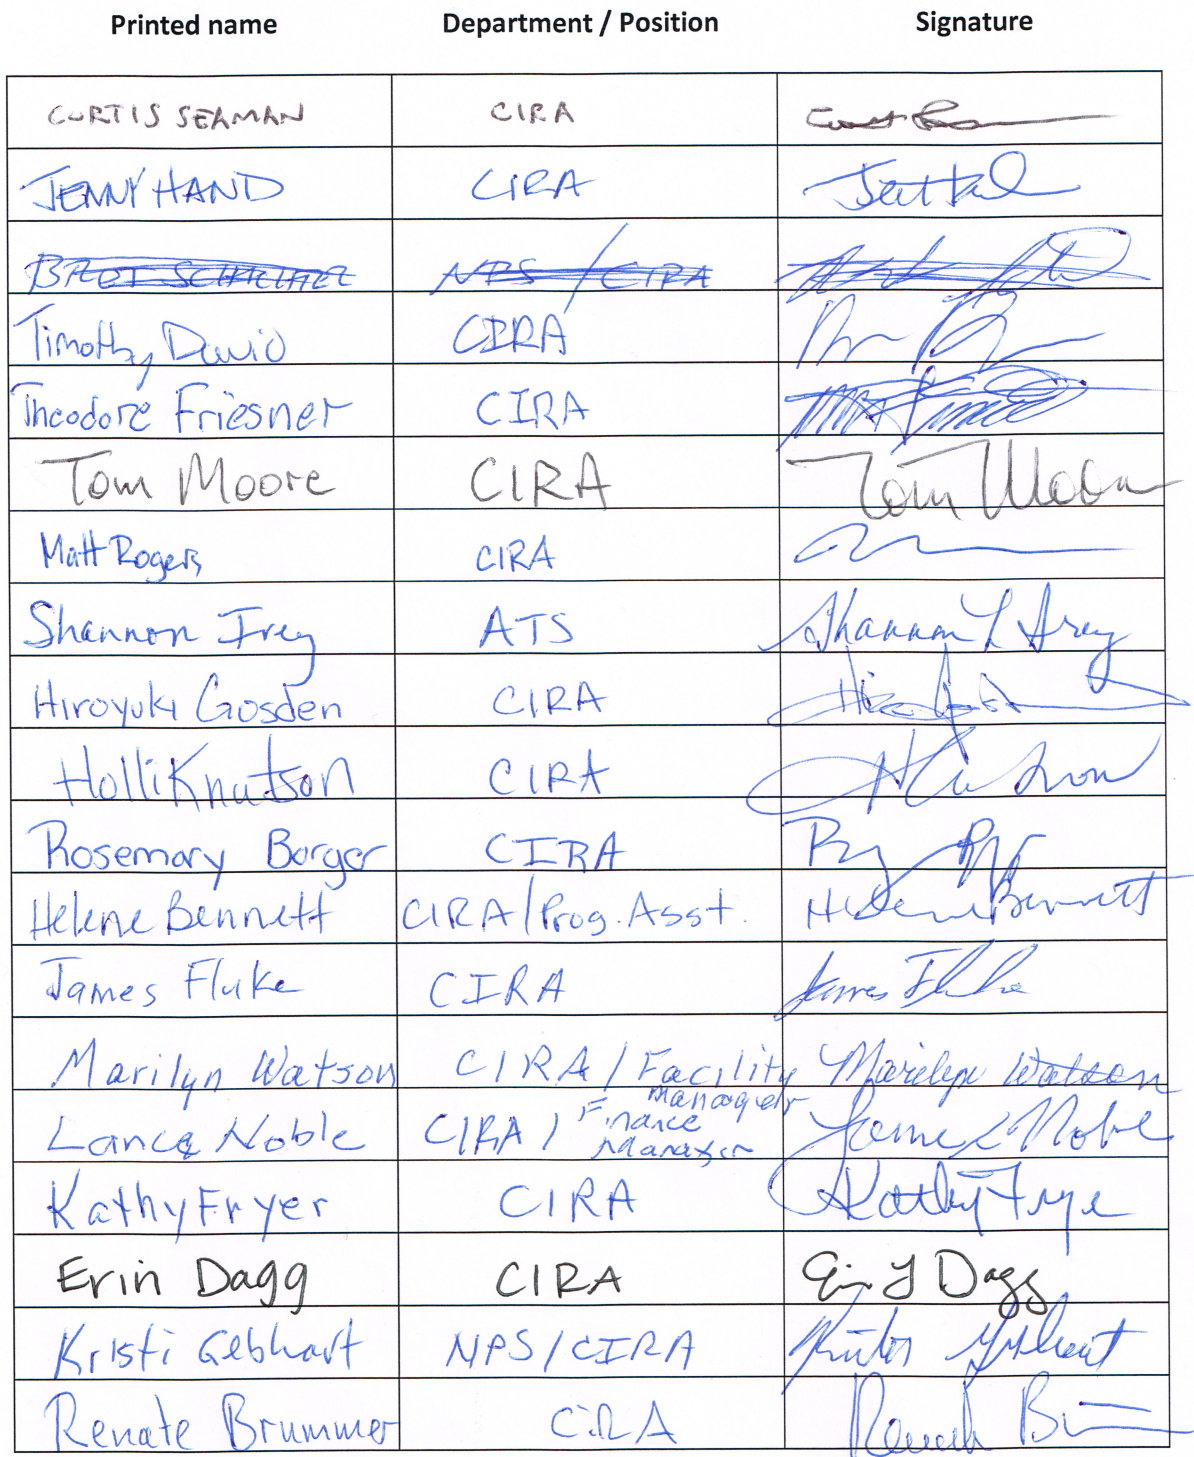 Printed name Department / Position Signature
CURTIS SEAMAN CIRA
JENNY HAND CIRA
NPS / CIRA
Timothy David CIRA
Theodore Friesner CIRA
Tom Moore CIRA Tom Moore
Matt Rogers CIRA
Shannon Irey ATS Shannon L Irey
Hiroyuki Gosden CIRA
Holli Knutson CIRA
Rosemary Borger CIRA
Helene Bennett CIRA/Prog. Asst. Helene Bennett
James Fluke CIRA James Fluke
Marilyn Watson CIRA / Facility Manager Marilyn Watson
Lance Noble CIRA / Finance Manager Lance Noble
Kathy Fryer CIRA Kathy Frye
Erin Dagg CIRA Erin Y Dagg
Kristi Gebhart NPS/CIRA Kristi Gebhart
Renate Brummer CIRA